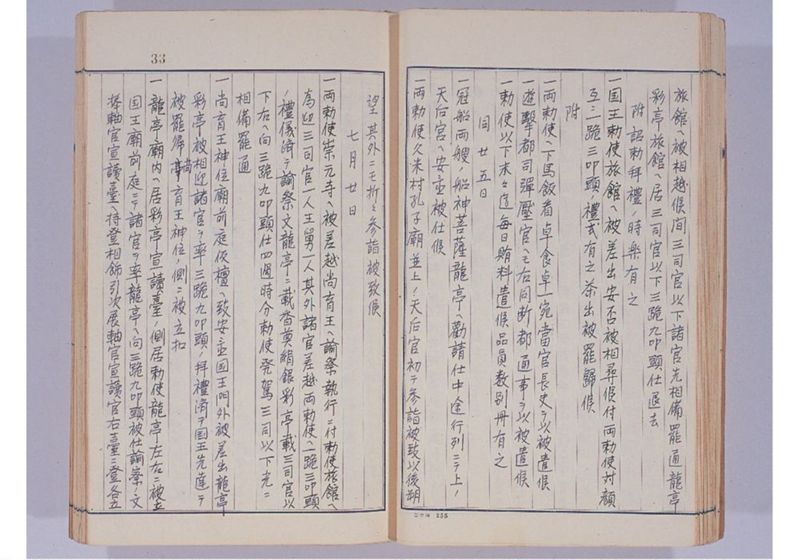 旅館へ被相越候間三司官以下諸官先相備罷通龍亭
彩亭旅館へ居三司官以下三跪九叩頭仕退去
附詔勅拝禮ノ時楽有之
一国王勅使旅館へ被差出安否被相尋候付両勅使対顔
互ニ一跪三叩頭ノ禮式有之茶出被罷歸候
附
一両勅使へ下馬飯着卓食卓一宛當官長史ヲ以被遣候
一遊撃都司弾壓官へも右同断都通事ヲ以被遣候
一勅使以下末々迄毎日賄料遣候品員数別冊有之
同廿五日
一冠船両艘ノ船神菩薩龍亭へ勧請仕中途行列ニテ上ノ
天后宮へ安置被仕候
一両勅使久米村孔子廟並上ノ天后宮初テ参詣被致以後朔
33
望其外ニモ折々参詣被致候
七月廿日
一両勅使崇元寺へ被差越尚育王へ諭祭執行ニ付勅使旅館へ
為迎三司官一人王舅一人其外諸官差越両勅使へ一跪三叩頭
ノ禮儀済テ諭祭文龍亭ニ載香奠絹銀彩亭載三司官以
下右へ向三跪九叩頭仕四過時分勅使発駕三司以下先ニ
相備罷通
一尚育王神位廟前庭仮檀へ致安置国王門外被差出龍亭
彩亭被相迎諸官ヲ率三跪九叩頭ノ拝禮済テ国王先達テ
被罷歸尚育王神位ノ側ニ被立扣
一龍亭廟内へ居彩亭宣讀臺ノ側居勅使龍亭左右ニ被立
国王廟前庭ニテ諸官ヲ率龍亭へ向三跪九叩頭被仕諭祭文
捧軸官宣讀臺へ持登相飾引次展軸官宣讀官右臺ニ登各立
二〇字詰 255